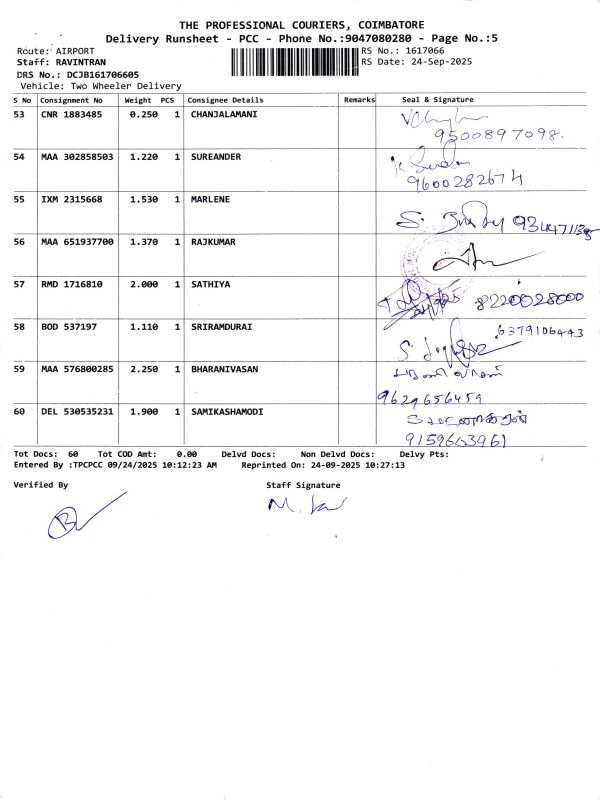 THE PROFESSIONAL COURIERS, COIMBATORE
Delivery Runsheet - PCC - Phone No.:9047080280 - Page No.:5
Route: AIRPORT RS No.: 1617066
Staff: RAVINTRAN RS Date: 24-Sep-2025
DRS No.: DCJB161706605
Vehicle: Two Wheeler Delivery
S No Consignment No Weight PCS Consignee Details Remarks Seal & Signature
53 CNR 1883485 0.250 1 CHANJALAMANI
9500897098.
54 MAA 302858503 1.220 1 SUREANDER
9600282674
55 IXM 2315668 1.530 1 MARLENE
S.
56 MAA 651937700 1.370 1 RAJKUMAR
57 RMD 1716810 2.000 1 SATHIYA
8220028000
58 BOD 537197 1.110 1 SRIRAMDURAI
6379106443
S.
59 MAA 576800285 2.250 1 BHARANIVASAN
9629656459
60 DEL 530535231 1.900 1 SAMIKASHAMODI
Tot Docs: 60 Tot COD Amt: 0.00 Delvd Docs: Non Delvd Docs: Delvy Pts:
Entered By :TPCPCC 09/24/2025 10:12:23 AM Reprinted On: 24-09-2025 10:27:13
Verified By Staff Signature